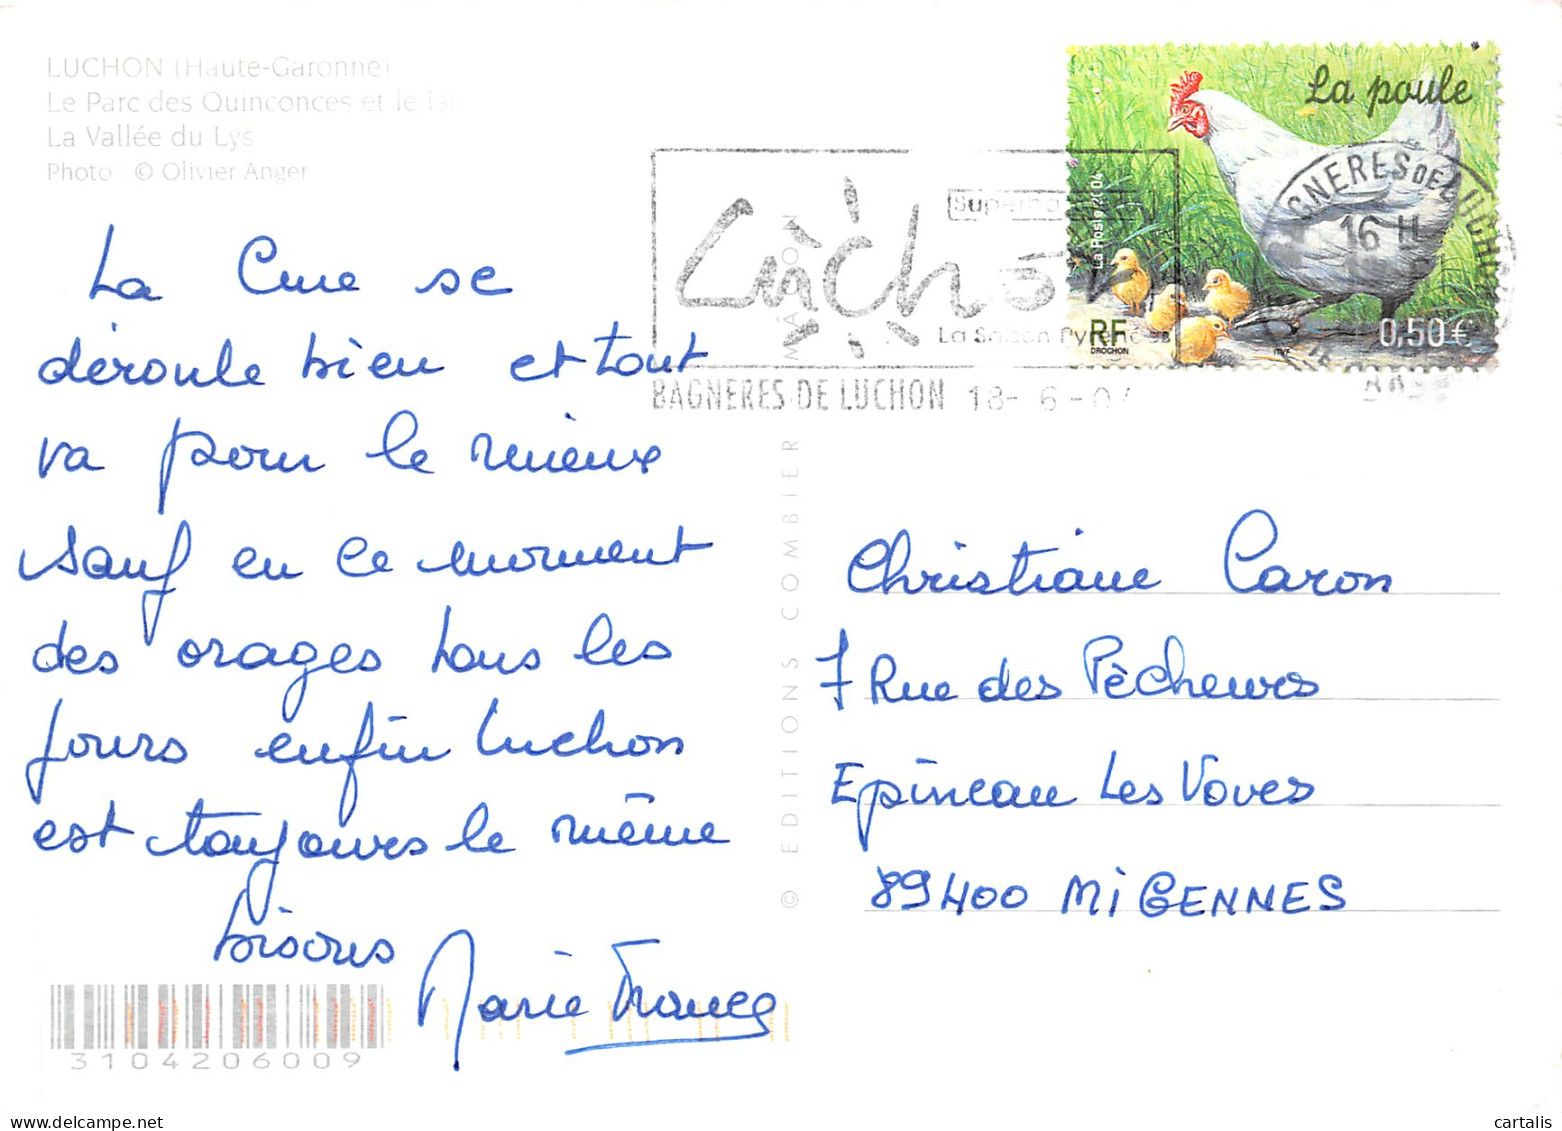 LUCHON (Haute-Garonne)
Le Parc des Quinconces et le lac
La Vallée du Lys
Photo : © Olivier Anger
La Cure se
déroule bien et tout
va pour le mieux
sauf en ce moment
des orages tous les
jours enfin Luchon
est toujours le même
bisous
Marie France
3104206009
© EDITIONS COMBIER MÂCON
Luchon
La Saison Pyrénées
BAGNERES DE LUCHON 18-6-04
La poule
La Poste 2004
RF
DROCHON
0,50 €
BAGNERES DE LUCHON
16 H
Christiane Caron
7 Rue des Pêcheurs
Epineau Les Voves
89400 MIGENNES
cartalis